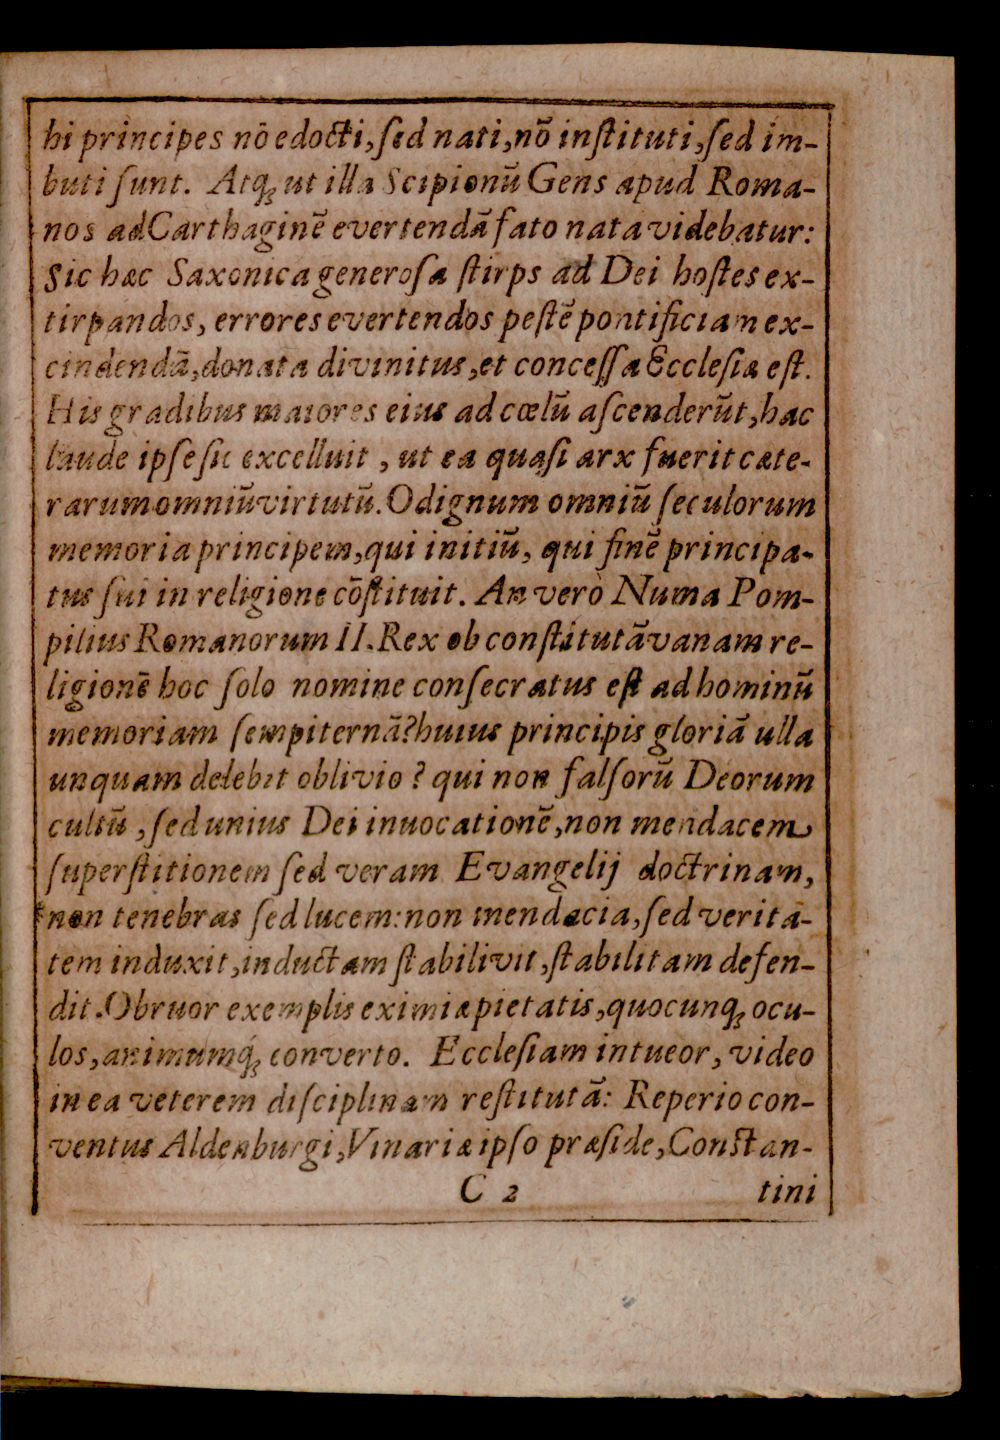 hi principes nō edocti, ſed nati, nō inſtituti, ſed im-
buti ſunt. Atq́ꝫ ut illa Scipionū Gens apud Roma-
nos ad Carthaginē evertendā fato nata videbatur:
Sic hæc Saxonica generoſa ſtirps ad Dei hoſtes ex-
tirpandos, errores evertendos peſtē pontificiam ex-
cindendā, donata divinitus, et conceſſa Eccleſiæ eſt.
His gradibus maiores eius ad cœlū aſcenderūt, hac
laude ipſe ſic excelluit, ut ea quaſi arx fuerit cæte-
rarum omniū virtutū. O dignum omniū ſeculorum
memoria principem, qui initiū, qui finē principa-
tus ſui in religione cōſtituit. An verò Numa Pom-
pilius Romanorum II. Rex ob conſtitutā vanam re-
ligionē hoc ſolo nomine conſecratus eſt ad hominū
memoriam ſempiternā? huius principis gloriā ulla
unquam delebit oblivio? qui non falſorū Deorum
cultū, ſed unius Dei inuocationē, non mendacem
ſuperſtitionem ſed veram Evangelij doctrinam,
non tenebras ſed lucem: non mendacia, ſed verita-
tem induxit, inductam ſtabilivit, ſtabilitam defen-
dit. Obruor exemplis eximiæ pietatis, quocunqꝫ ocu-
los, animumq́ꝫ converto. Eccleſiam intueor, video
in ea veterem diſciplinam reſtitutā: Reperio con-
ventus Aldenburgi, Vinariæ ipſo præſide, Conſtan-
C 2 tini